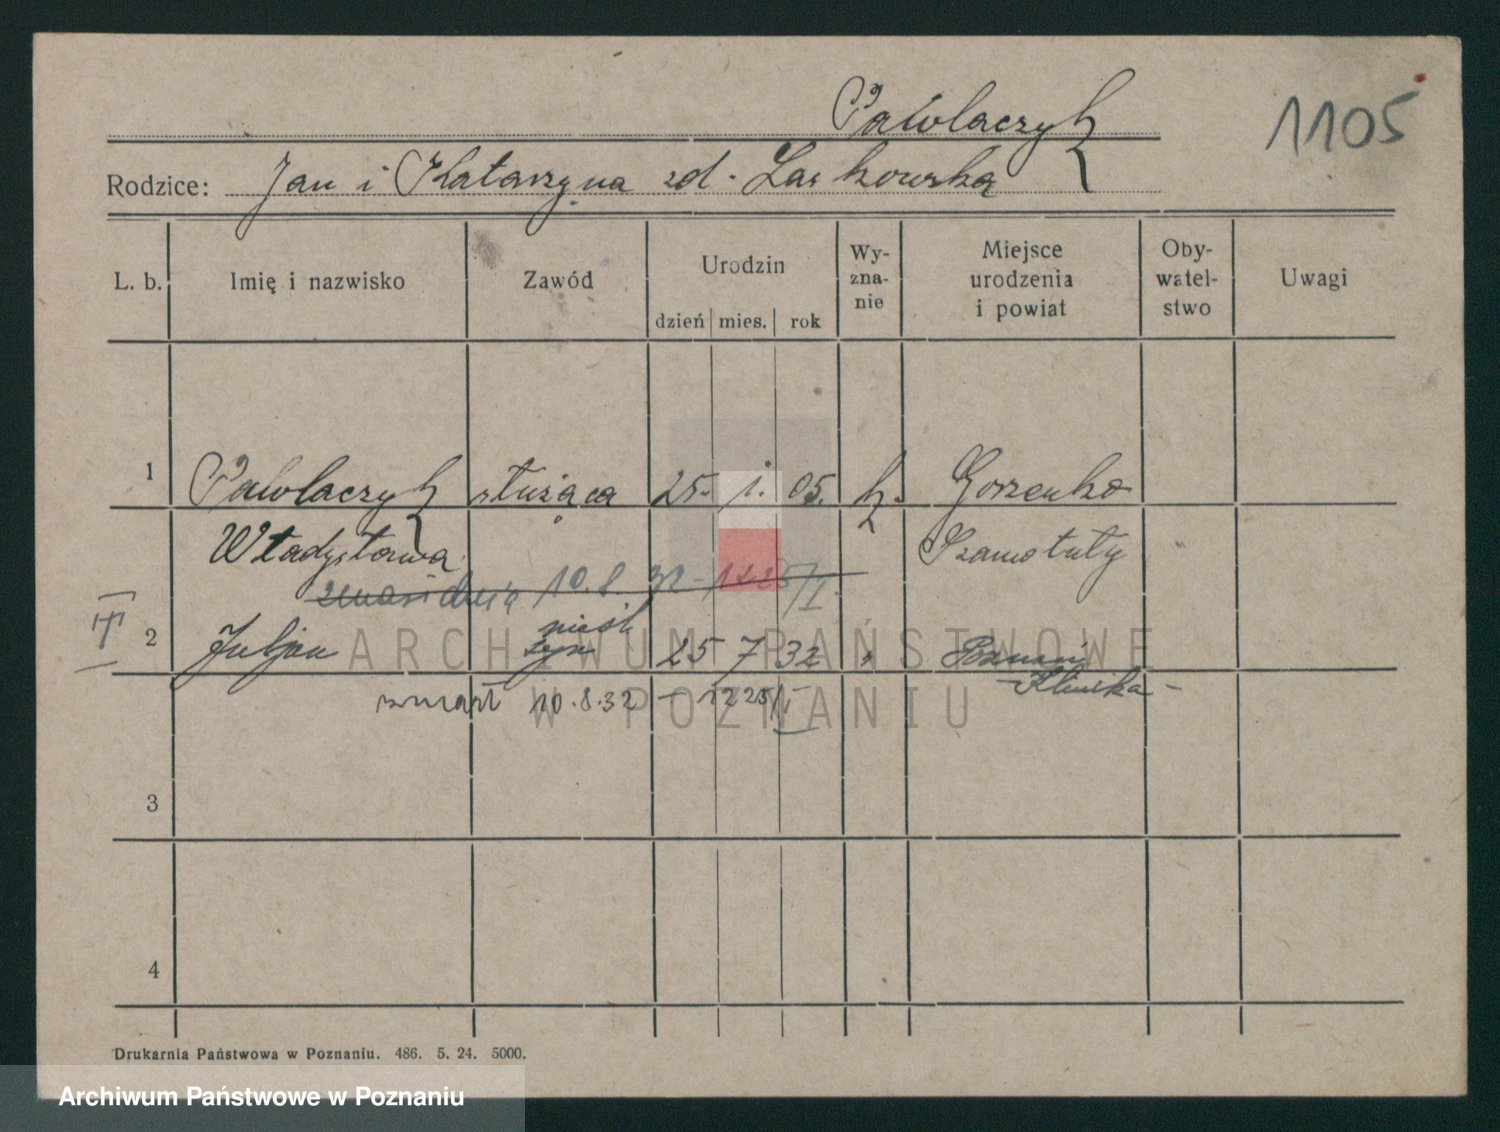 Pawlaczyk
1105
Rodzice: Jan i Katarzyna zd. Laskowska
L. b.
Imię i nazwisko
Zawód
Urodzin
dzień mies. rok
Wy-
zna-
nie
Miejsce
urodzenia
i powiat
Oby-
watel-
stwo
Uwagi
1 Pawlaczyk służąca 25. 1. 05. k. Gorzenko
Władysława Szamotuły
10.8.32 - 1225/I
2 Juljan nieśl. 25 7 32 " Poznań
syn Klinika -
zmarł 10.8.32 - 1225/I
3
4
Drukarnia Państwowa w Poznaniu. 486. 5. 24. 5000.
ARCHIWUM PAŃSTWOWE
W POZNANIU
Archiwum Państwowe w Poznaniu